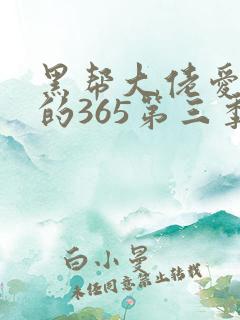 黑帮大佬爱
的365第三季
白小曼
未经同意禁止转载